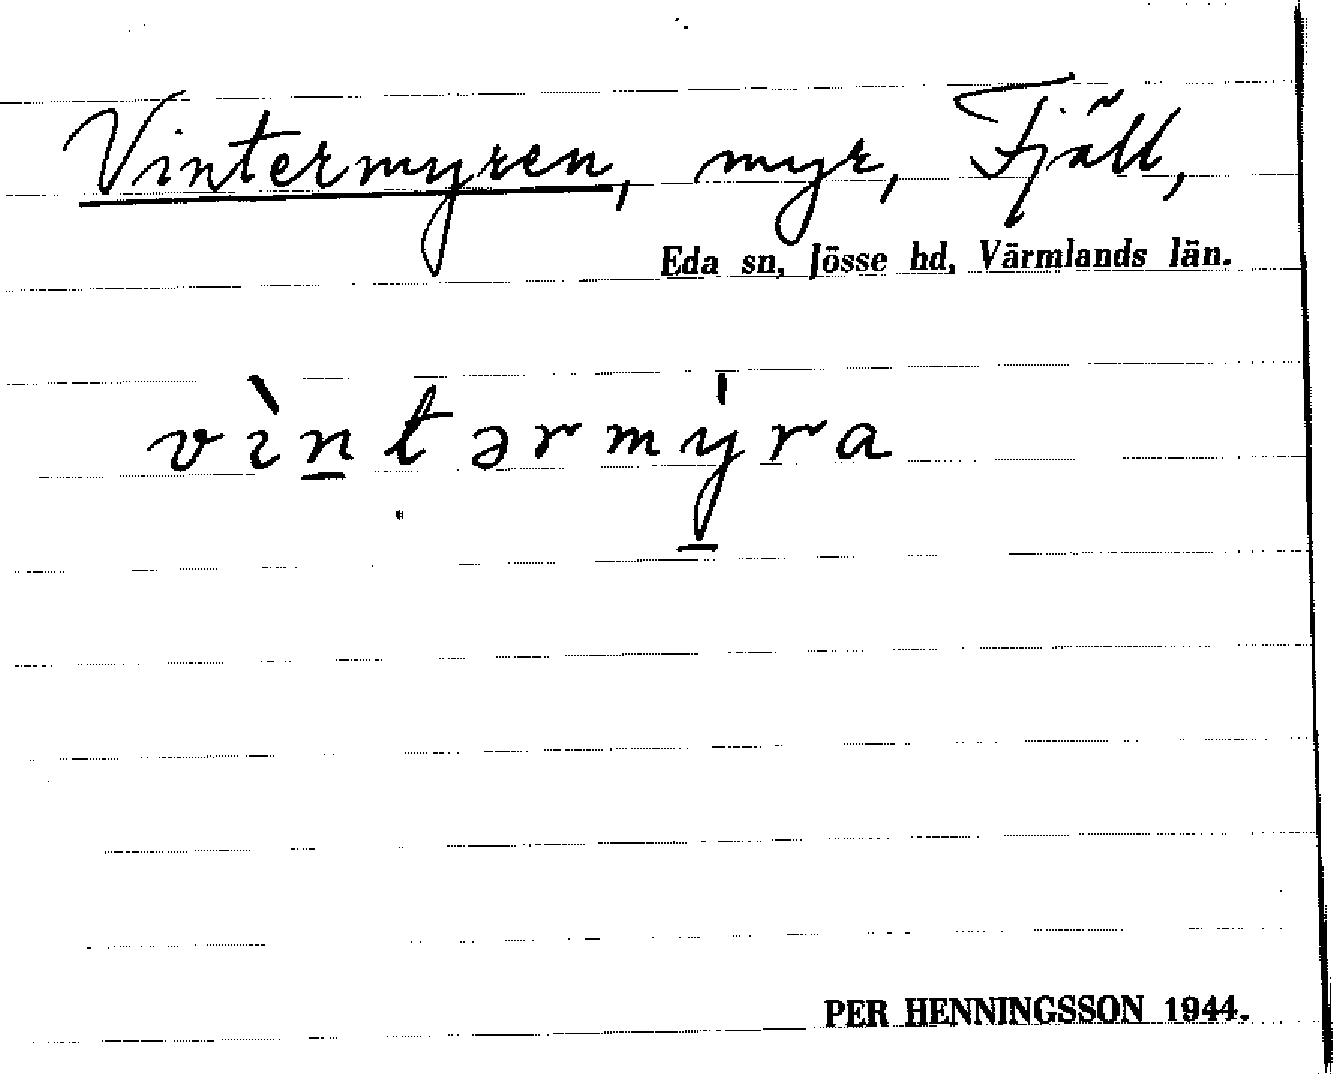 Vintermyren, myr, Fjäll,
Eda sn, Jösse hd, Värmlands län.
vìn̲tərmý̲ra
PER HENNINGSSON 1944.